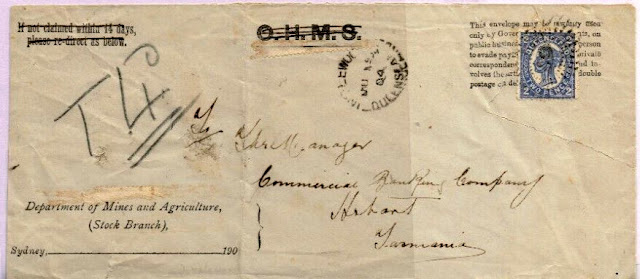 If not claimed within 14 days,
please re-direct as below.
O.H.M.S.
This envelope may be
only by Gover
public busine person
to evade paym
correspondent in-
volves the double
postage
QUEENSLAND
MR
04
T 4D
The Manager
Commercial Banking Company
Hobart
Tasmania
Department of Mines and Agriculture,
(Stock Branch),
Sydney, 190